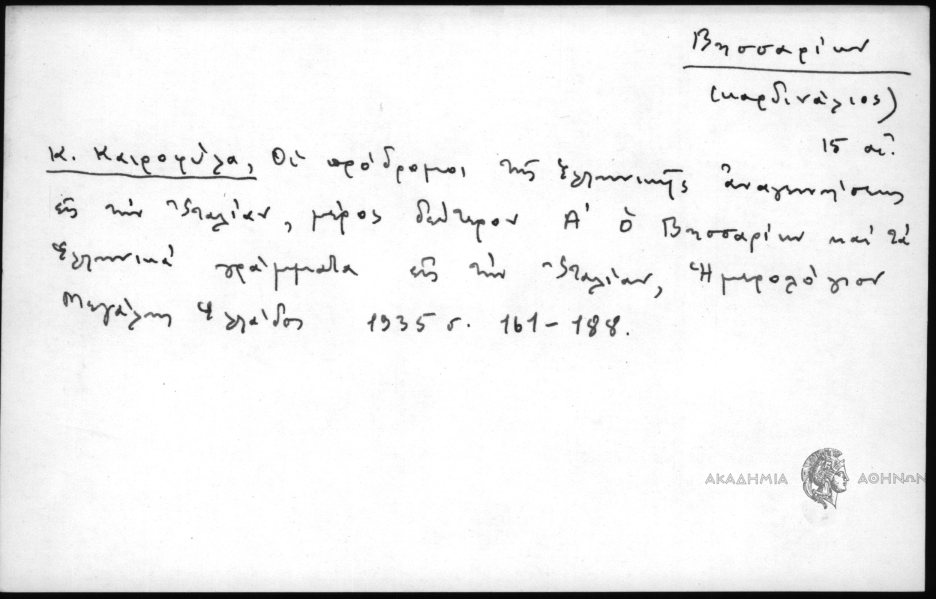 Βησσαρίων
(καρδινάλιος)
15 αἰ.
Κ. Καιροφύλα, Οἱ πρόδρομοι τῆς Ἑλληνικῆς ἀναγεννήσεως
εἰς τὴν Ἰταλίαν, μέρος δεύτερον Α' ὁ Βησσαρίων καὶ τὰ
Ἑλληνικὰ γράμματα εἰς τὴν Ἰταλίαν, Ἡμερολόγιον
Μεγάλης Ἑλλάδος 1935 σ. 161-188.
ΑΚΑΔΗΜΙΑ ΑΘΗΝΩΝ